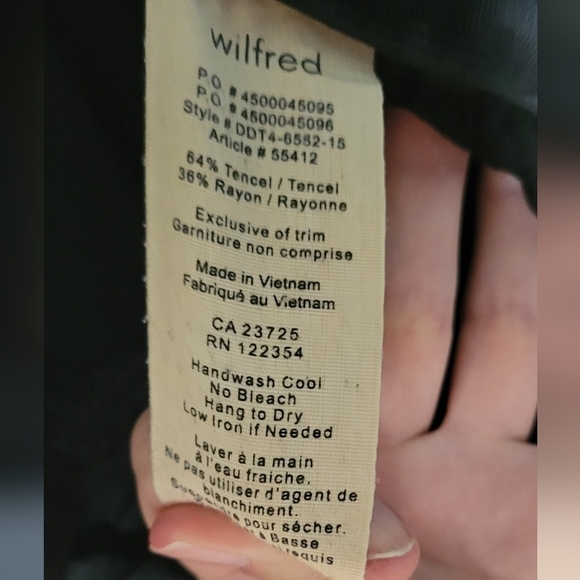 wilfred
P.O. # 4500045095
P.O. # 4500045096
Style # DDT4-6552-15
Article # 55412
64% Tencel / Tencel
36% Rayon / Rayonne
Exclusive of trim
Garniture non comprise
Made in Vietnam
Fabriqué au Vietnam
CA 23725
RN 122354
Handwash Cool
No Bleach
Hang to Dry
Low Iron if Needed
Laver à la main
à l'eau fraiche.
Ne pas utiliser d'agent de
blanchiment.
pour sécher.
Basse
requis